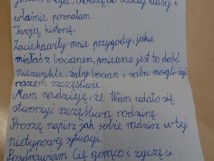 właśnie, poznałam
Twoją historię.
Zaciekawiły mnie przygody, jakie
miałaś z bocianem, ponieważ jest to dość
niezwykłe, żeby bocian i żaba mogli żyć
razem szczęśliwie.
Mam nadzieję, że Wam udało się
stworzyć szczęśliwą rodzinę.
Proszę napisz jak sobie radzisz w tej
nietypowej sytuacji.
Pozdrawiam Cię gorąco i życzę Ci